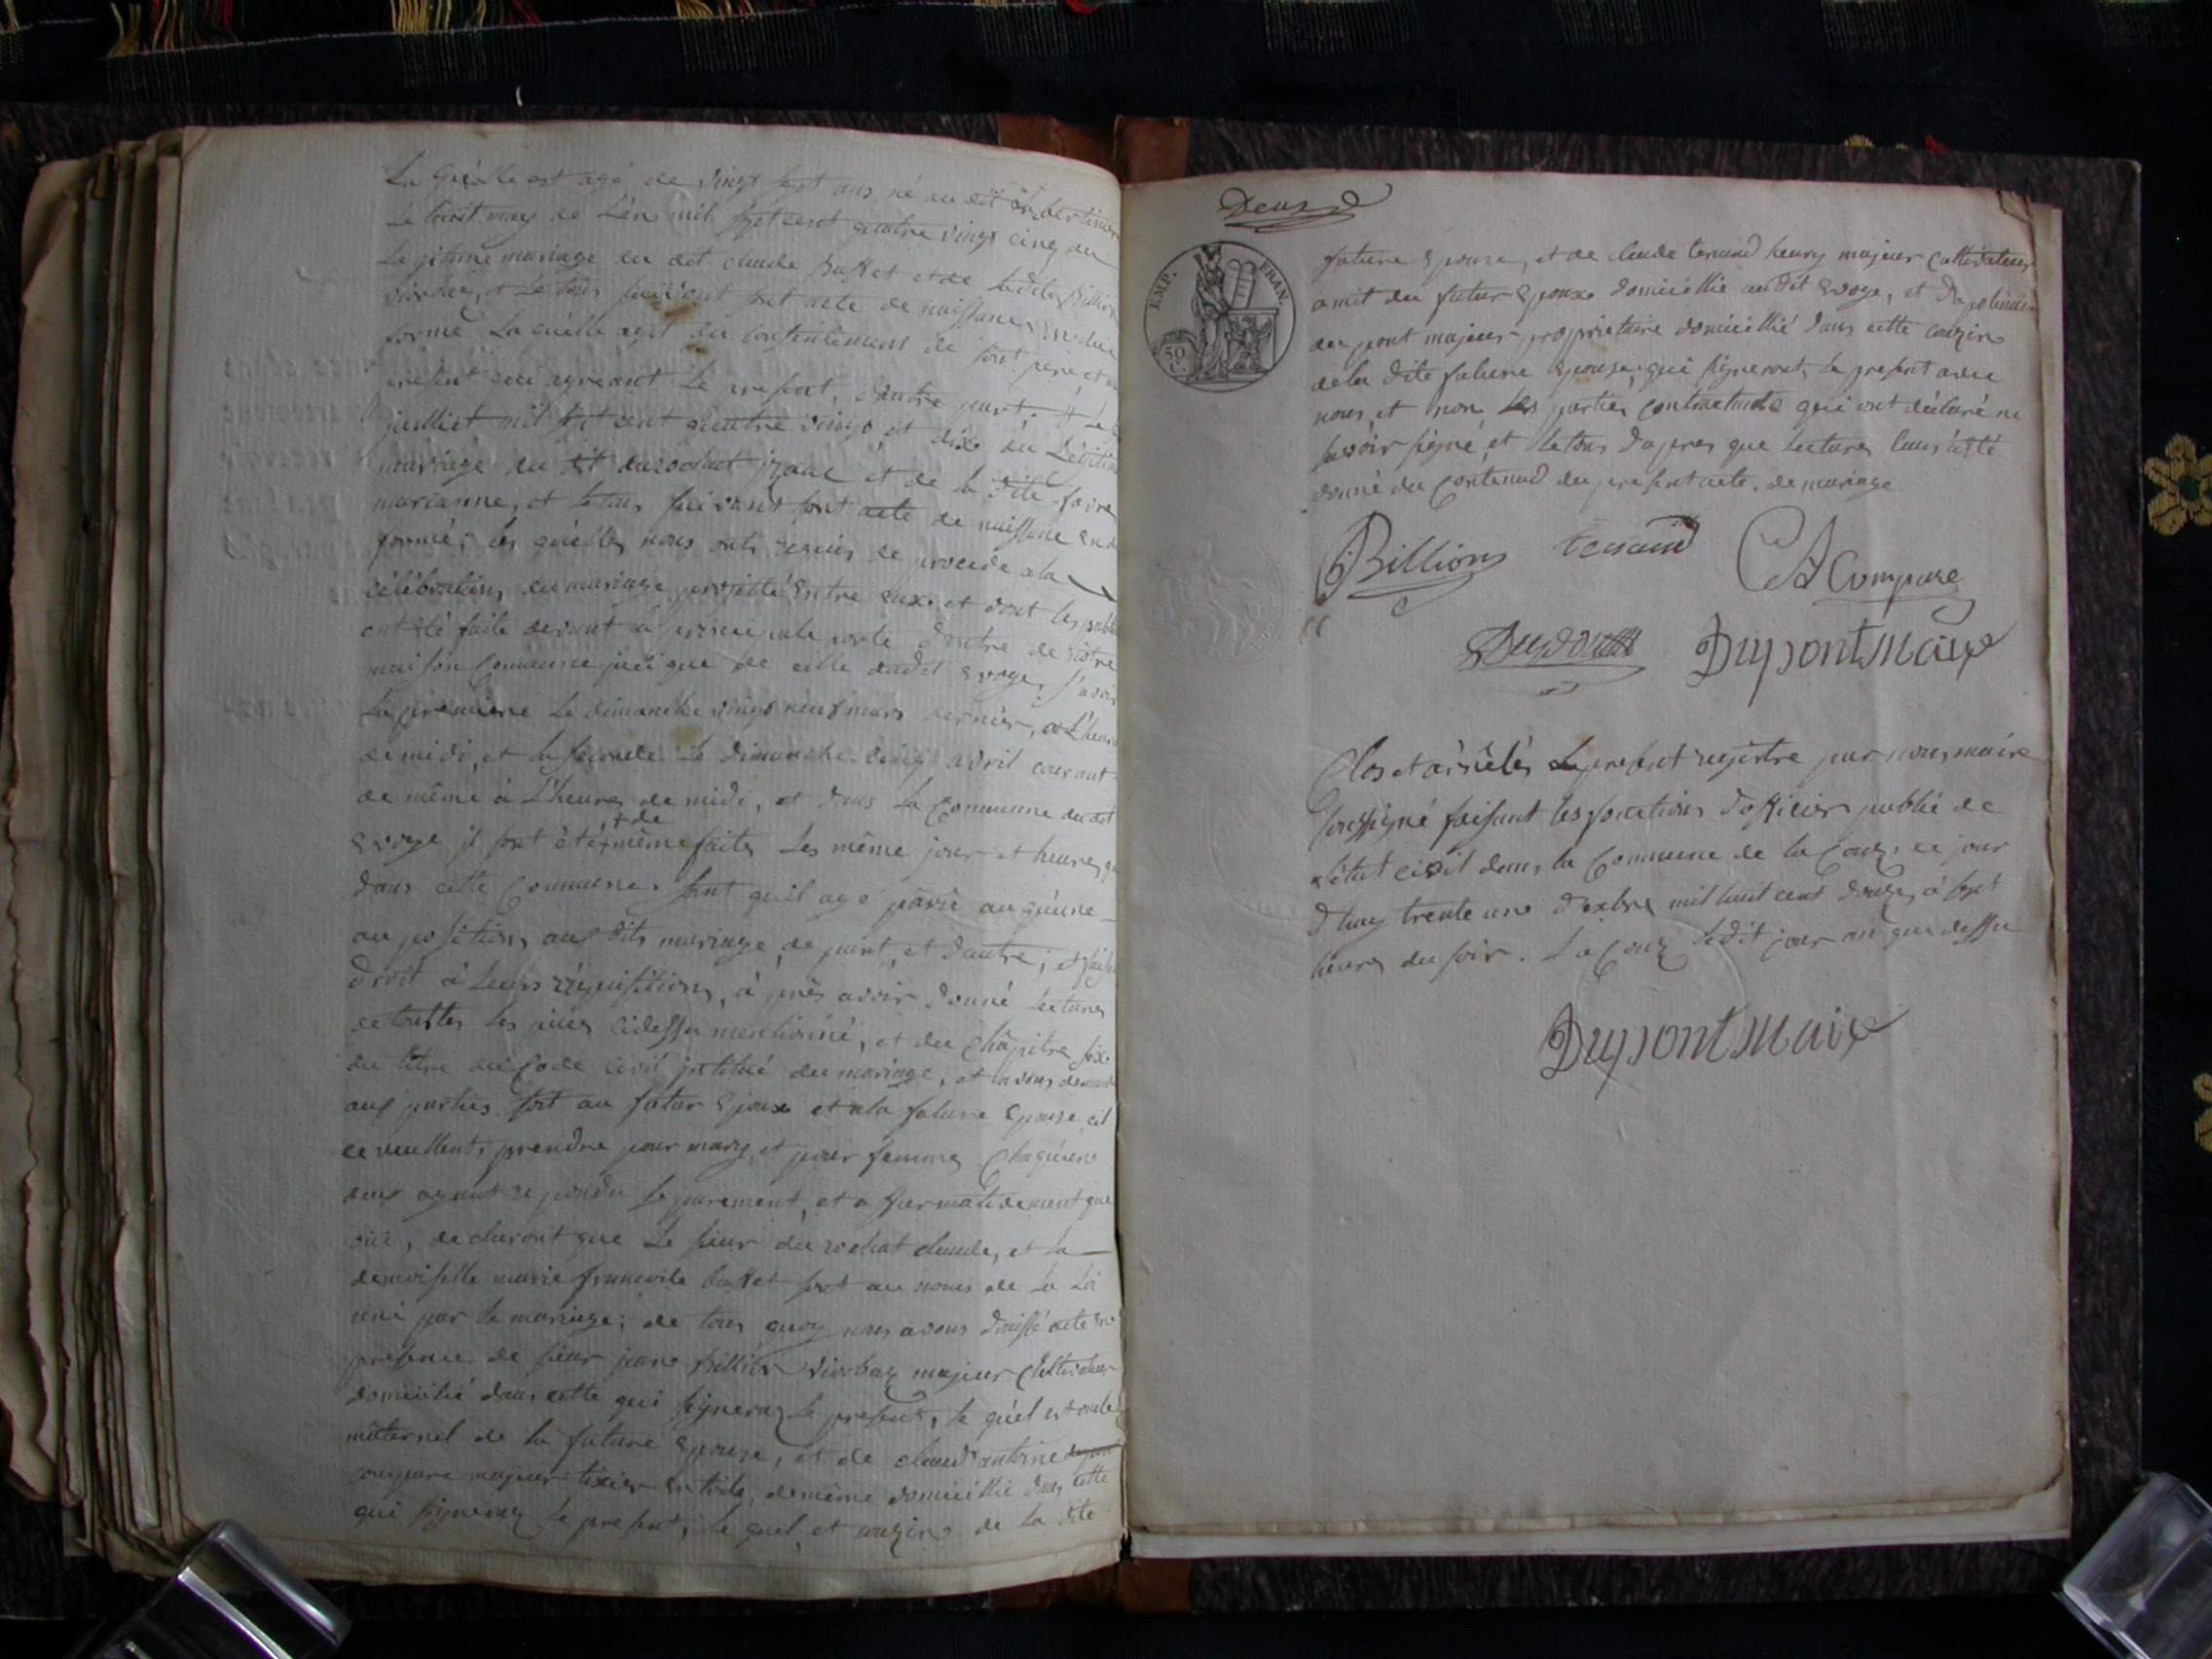 La quelle est agé de vingt sept ans, né au dit
Le huit may de L'an mil sept cent quatre vingt cinq du
Legitime mariage du dit claude buffet et de
et le tous suivant son acte de naissance en due
forme La quelle agit du consentement de son père et
present qui agreant Le present, d'autre part.
juilliet mil sept cent quatre vingt et dix du Légitime
mariage du dit durochat jzaac et de la dite favre
marianne, et le tous suivant sont acte de naissance en
formé; les quelles nous onts requis de procede a la
célébration du mariage projetté entre eux et dont les
ont été faite devant la principale porte d'entre de nôtre
maison Comunne que de celle dudit evoge, savoir
La première le dimanche vingt neuf mars dernier, a L'heure
de midi, et la seconde Le dimanche cinq avril courant
de même à L'heure de midi, et dans la Commune du dit
+ de
evoge il sont été + même faites Les même jour et heures
dans cette Commune. sant qu'il aye parvê auquune
au positions aux dits mariage de part, et d'autre; et
droit à leurs réquisitions, à près avoir donné lectures
de touttes les pièces cidessu mentionné, et du Chapitre six
du titre du Code Civil jntitué du mariage, et avons
aux parties soit au futur epoux et a la future epouse
ce veullent, prendre pour mary, et pour femme, Chaquune
deux ayant repondu separement, et affirmativement que
oüi, declaront que le sieur durochat claude, et la
demoiselle marie francoise buffet sont au noms de La Loi
uni par le mariage; de tous quoy nous avons dressé acte en
presence de sieur jean Billion majeur Cultivateur
domicilié dans cette qui signeraz le present, le quel est oncle
maternel de la future epouse, et de claud antoine
compare majeur tixier en toile, de même domicillié dans cette
qui signeraz le present, le quel, et couzin de la dite
Deux
EMP. FRAN.
50 C.
future epouse, et de claude tenand heury majeur Cultivateur
amit du futur epoux domicillié au dit evoge, et
du pont majeur propriettaire domicillié dans cette couzin
de la dite future epouse, qui signeront le present avec
nous et non les parties contractante qui ont déclaré ne
savoir signé, et le tous d'apres que lectures leurs'eté
donné du Contenud du present acte. de mariage
Billion tenand CA Compare
Dupont Dupont Maire
Clos et arrêtés le present registre par nous maire
soussigné faisant les fonctions d'officier publié de
L'état civil dans la Commune de la Couz. ce jour
d'huy trente une dexbre mil huit cent douze, à sept
heures du soir. La Couz ledit jour an que dessu
Dupont Maire